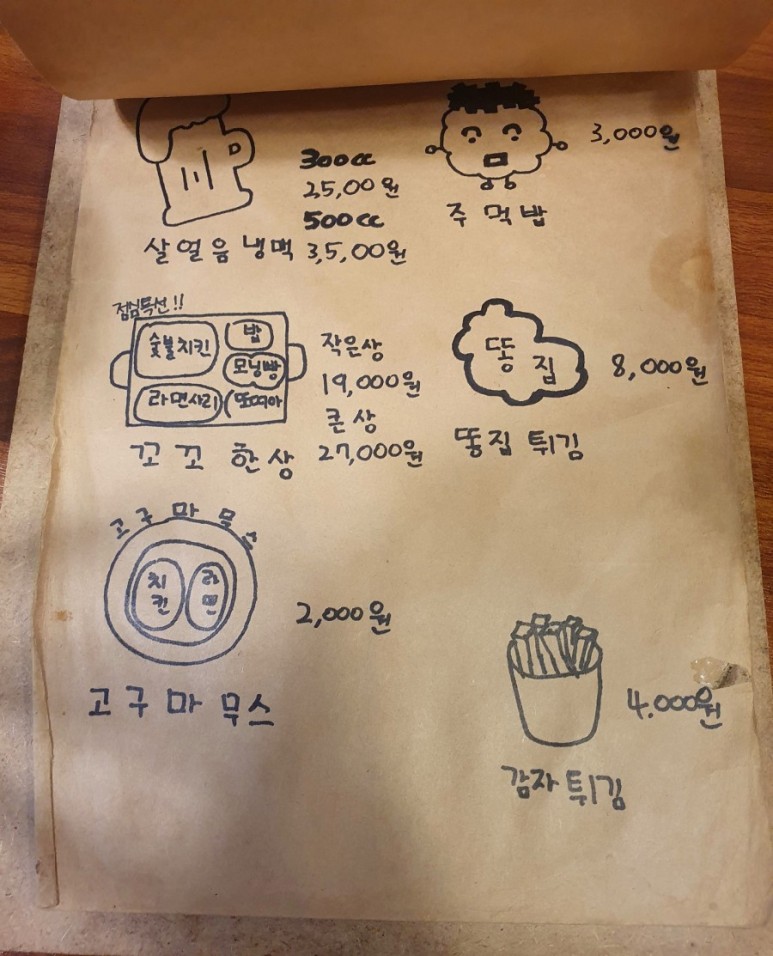 300cc
25,00원
500cc
살얼음 냉맥 3,5,00원
3,000원
주먹밥
점심특선!!
숯불치킨 밥
모닝빵
라면사리 또띠아
꼬꼬 한상
작은상
19,000원
큰상
27,000원
똥집
8,000원
똥집 튀김
고구마 무스
치킨
라면
2,000원
고구마 무스
4.000원
감자튀김